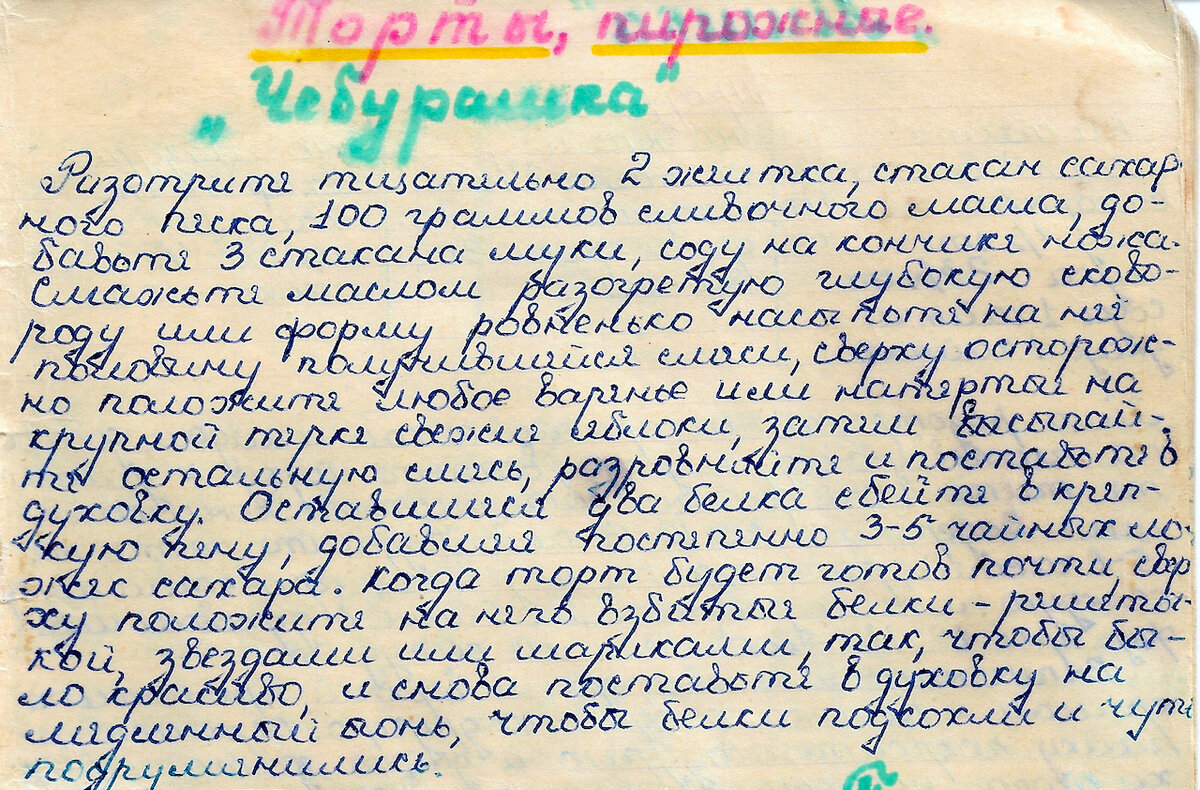 Торты, пирожные.
„Чебурашка"
Разотрите тщательно 2 желтка, стакан сахар
ного песка, 100 граммов сливочного масла, до-
бавьте 3 стакана муки, соду на кончике ножа.
Смажьте маслом разогретую глубокую сково-
роду или форму ровненько насыпьте на неё
половину получившейся смеси, сверху осторож-
но положите любое варенье или натертые на
крупной терке свежие яблоки, затем высыпай-
те остальную смесь, разровняйте и поставьте в
духовку. Оставшиеся два белка сбейте в креп-
кую пену, добавляя постепенно 3-5 чайных ло-
жек сахара. Когда торт будет готов почти, свер
ху положите на него взбитые белки - решёточ-
кой, звездами или шариками, так, чтобы бы-
ло красиво, и снова поставьте в духовку на
медленный огонь, чтобы белки подсохли и чуть
подрумянились.